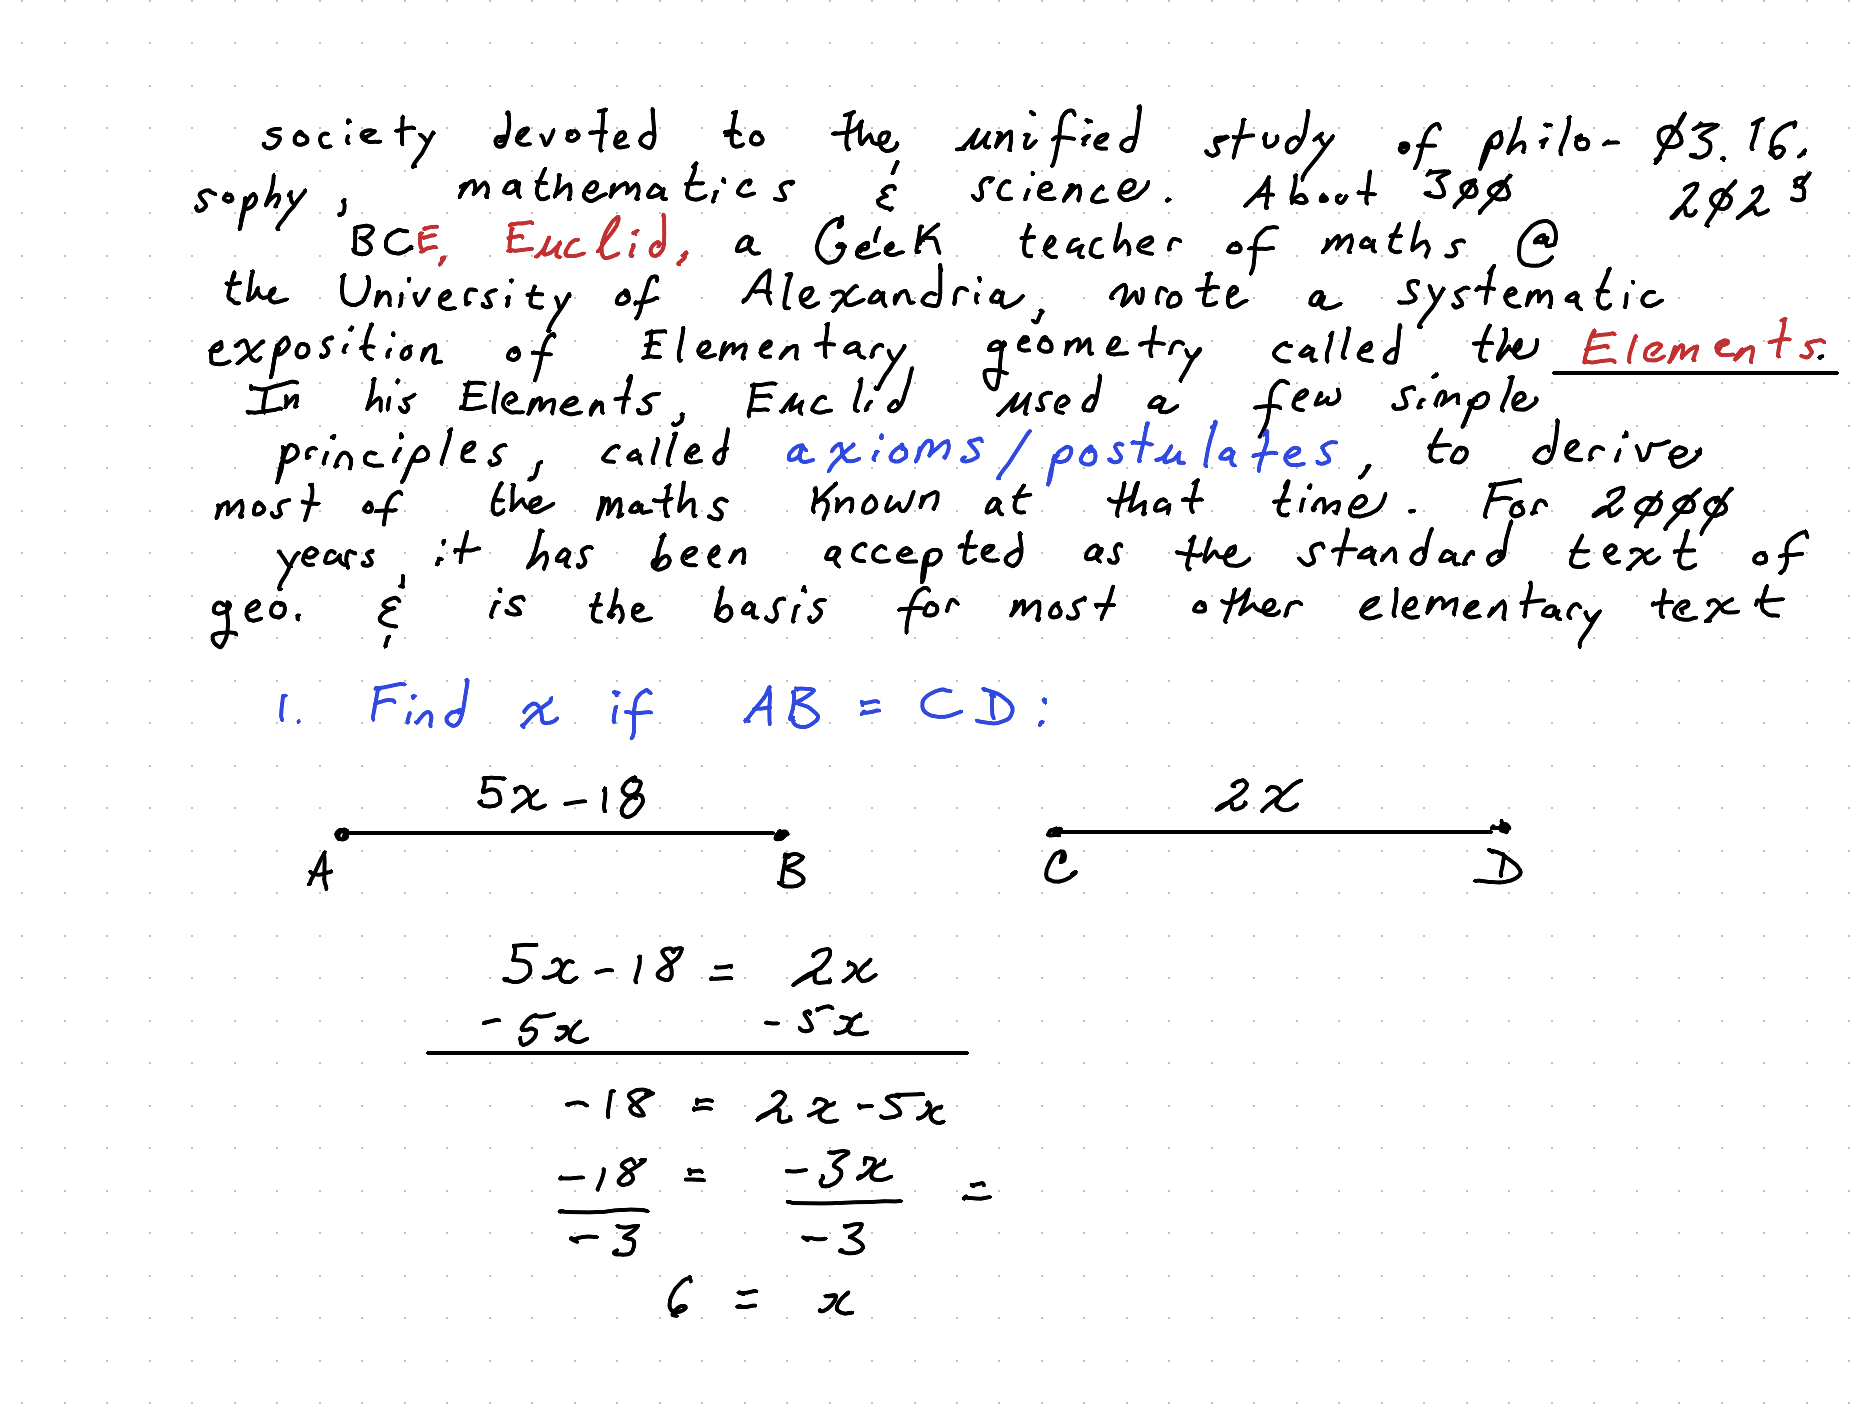 society devoted to the unified study of philo- Ø3.16.
sophy, mathematics & science. About 3ØØ 2Ø25
BCE, Euclid, a Geek teacher of maths @
the University of Alexandria, wrote a systematic
exposition of Elementary geometry called the Elements.
In his Elements, Euclid used a few simple
principles, called axioms/postulates, to derive
most of the maths known at that time. For 2ØØØ
years it has been accepted as the standard text of
geo. & is the basis for most other elementary text
1. Find x if AB = CD:
5x-18 2x
A B C D
5x-18 = 2x
-5x -5x
-18 = 2x-5x
-18 = -3x =
-3 -3
6 = x